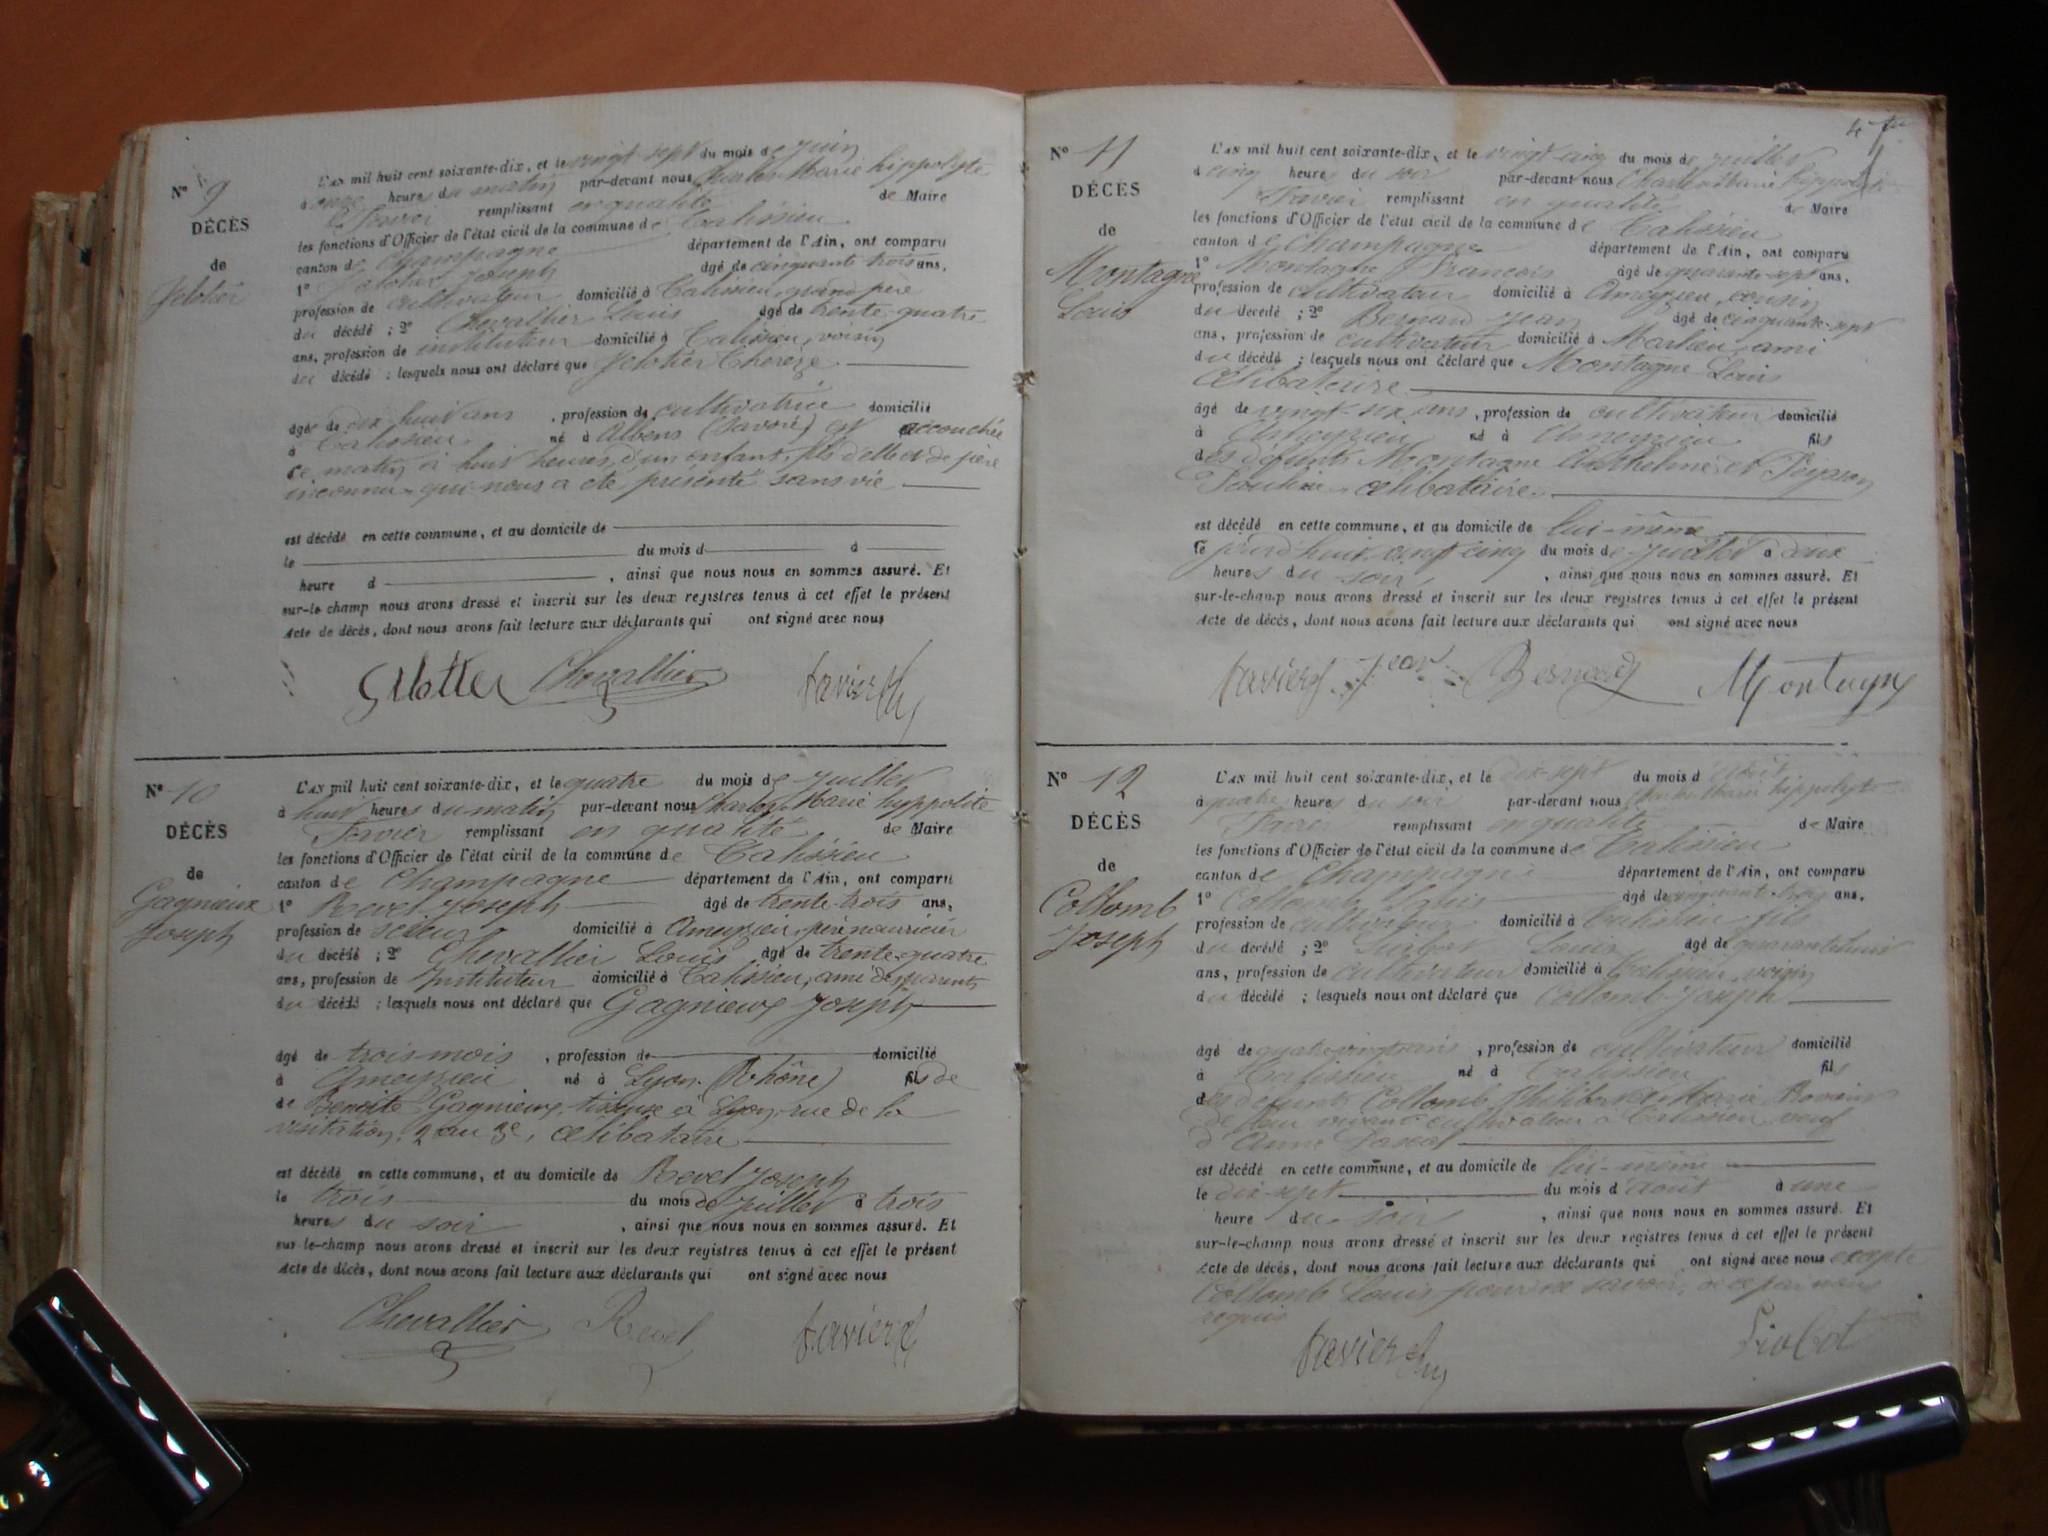 N° 9
DÉCÈS
de
Jelotier
L'AN mil huit cent soixante-dix, et le vingt sept du mois de juin
à onze heures du matin par-devant nous Charles Marie hippolyte
Favier remplissant en qualité de Maire
les fonctions d'Officier de l'état civil de la commune de Talissieu
canton de Champagne département de l'Ain, ont comparu
1° Jelotier Joseph âgé de cinquante trois ans,
profession de cultivateur domicilié à Talissieu, grand père
du décédé ; 2° Chevallier Louis âgé de trente-quatre
ans, profession de instituteur domicilié à Talissieu, voisin
du décédé ; lesquels nous ont déclaré que Jelotier Thereze
âgée de dix huit ans, profession de cultivatrice domicilié
à Talissieu né à Albens (Savoie) est accouchée
ce matin à huit heures, d'un enfant, fils d'elle et de père
inconnu qui nous a été présenté sans vie
est décédé en cette commune, et au domicile de
le du mois d à
heure d , ainsi que nous nous en sommes assuré. Et
sur-le champ nous avons dressé et inscrit sur les deux registres tenus à cet effet le présent
Acte de décès, dont nous avons fait lecture aux déclarants qui ont signé avec nous
Chevallier favier
N° 10
DÉCÈS
de
Gagnieux
Joseph
L'AN mil huit cent soixante-dix, et le quatre du mois de Juillet
à huit heures du matin par-devant nous Charles Marie hyppolite
Favier remplissant en qualité de Maire
les fonctions d'Officier de l'état civil de la commune de Talissieu
canton de Champagne département de l'Ain, ont comparu
1° Revel Joseph âgé de trente-trois ans,
profession de domicilié à Ameyzieu, père nouricier
du décédé ; 2° Chevallier Louis âgé de trente-quatre
ans, profession de Instituteur domicilié à Talissieu, ami des parents
du décédé ; lesquels nous ont déclaré que Gagnieux Joseph
âgé de trois mois, profession de domicilié
à Ameyzieu né à Lyon (Rhône) fils de
de Benoite Gagnieux, tisseuse à Lyon, rue de la
visitation, 2 au 3e, célibataire
est décédé en cette commune, et au domicile de Revel Joseph
le trois du mois de juillet à trois
heures du soir , ainsi que nous nous en sommes assuré. Et
sur-le-champ nous avons dressé et inscrit sur les deux registres tenus à cet effet le présent
Acte de décès, dont nous avons fait lecture aux déclarants qui ont signé avec nous
Chevallier Revel favier
N° 11
DÉCÈS
de
Montagne
Louis
L'AN mil huit cent soixante-dix, et le vingt cinq du mois de juillet
à cinq heures du soir par-devant nous Charles Marie hippolyte
Favier remplissant en qualité de Maire
les fonctions d'Officier de l'état civil de la commune de Talissieu
canton de Champagne département de l'Ain, ont comparu
1° Montagne François âgé de quarante-sept ans,
profession de cultivateur domicilié à Ameyzieu, cousin
du décédé ; 2° Bernard Jean âgé de cinquante-sept
ans, profession de cultivateur domicilié à Marlieu, ami
du décédé ; lesquels nous ont déclaré que Montagne Louis
Célibataire
âgé de vingt-six ans, profession de cultivateur domicilié
à Ameyzieu né à Ameyzieu fils
des défunts Montagne Anthelme et Peysson
célibataire
est décédé en cette commune, et au domicile de lui-même
le jourd'huit vingt cinq du mois de juillet à deux
heures du soir , ainsi que nous nous en sommes assuré. Et
sur-le-champ nous avons dressé et inscrit sur les deux registres tenus à cet effet le présent
Acte de décès, dont nous avons fait lecture aux déclarants qui ont signé avec nous
favier Jean Bernard Montagne
N° 12
DÉCÈS
de
Collomb
Joseph
L'AN mil huit cent soixante-dix, et le dix-sept du mois d'août
à quatre heures du soir par-devant nous Charles Marie hippolyte
Favier remplissant en qualité de Maire
les fonctions d'Officier de l'état civil de la commune de Talissieu
canton de Champagne département de l'Ain, ont comparu
1° Collomb Louis âgé de cinquante-trois ans,
profession de cultivateur domicilié à Talissieu, fils
du décédé ; 2° Louis âgé de quarante huit
ans, profession de cultivateur domicilié à Talissieu, voisin
du décédé ; lesquels nous ont déclaré que Collomb Joseph
âgé de, profession de cultivateur domicilié
à Talissieu né à Talissieu fils
des défunts Collomb Philibert et Marie
de leur vivant cultivateurs à Talissieu, veuf
d'Anne Pascal
est décédé en cette commune, et au domicile de lui-même
le dix-sept du mois d'août à une
heure du soir , ainsi que nous nous en sommes assuré. Et
sur-le-champ nous avons dressé et inscrit sur les deux registres tenus à cet effet le présent
Acte de décès, dont nous avons fait lecture aux déclarants qui ont signé avec nous excepté
Collomb Louis pour ne savoir, de ce par nous
requis
favier